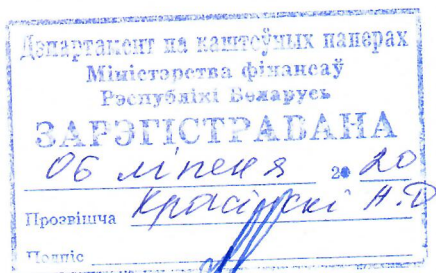 Дэпартамент па каштоўных паперах
Міністэрства фінансаў
Рэспублікі Беларусь
ЗАРЭГІСТРАВАНА
06 ліпеня 2020
Прозвішча
Подпіс